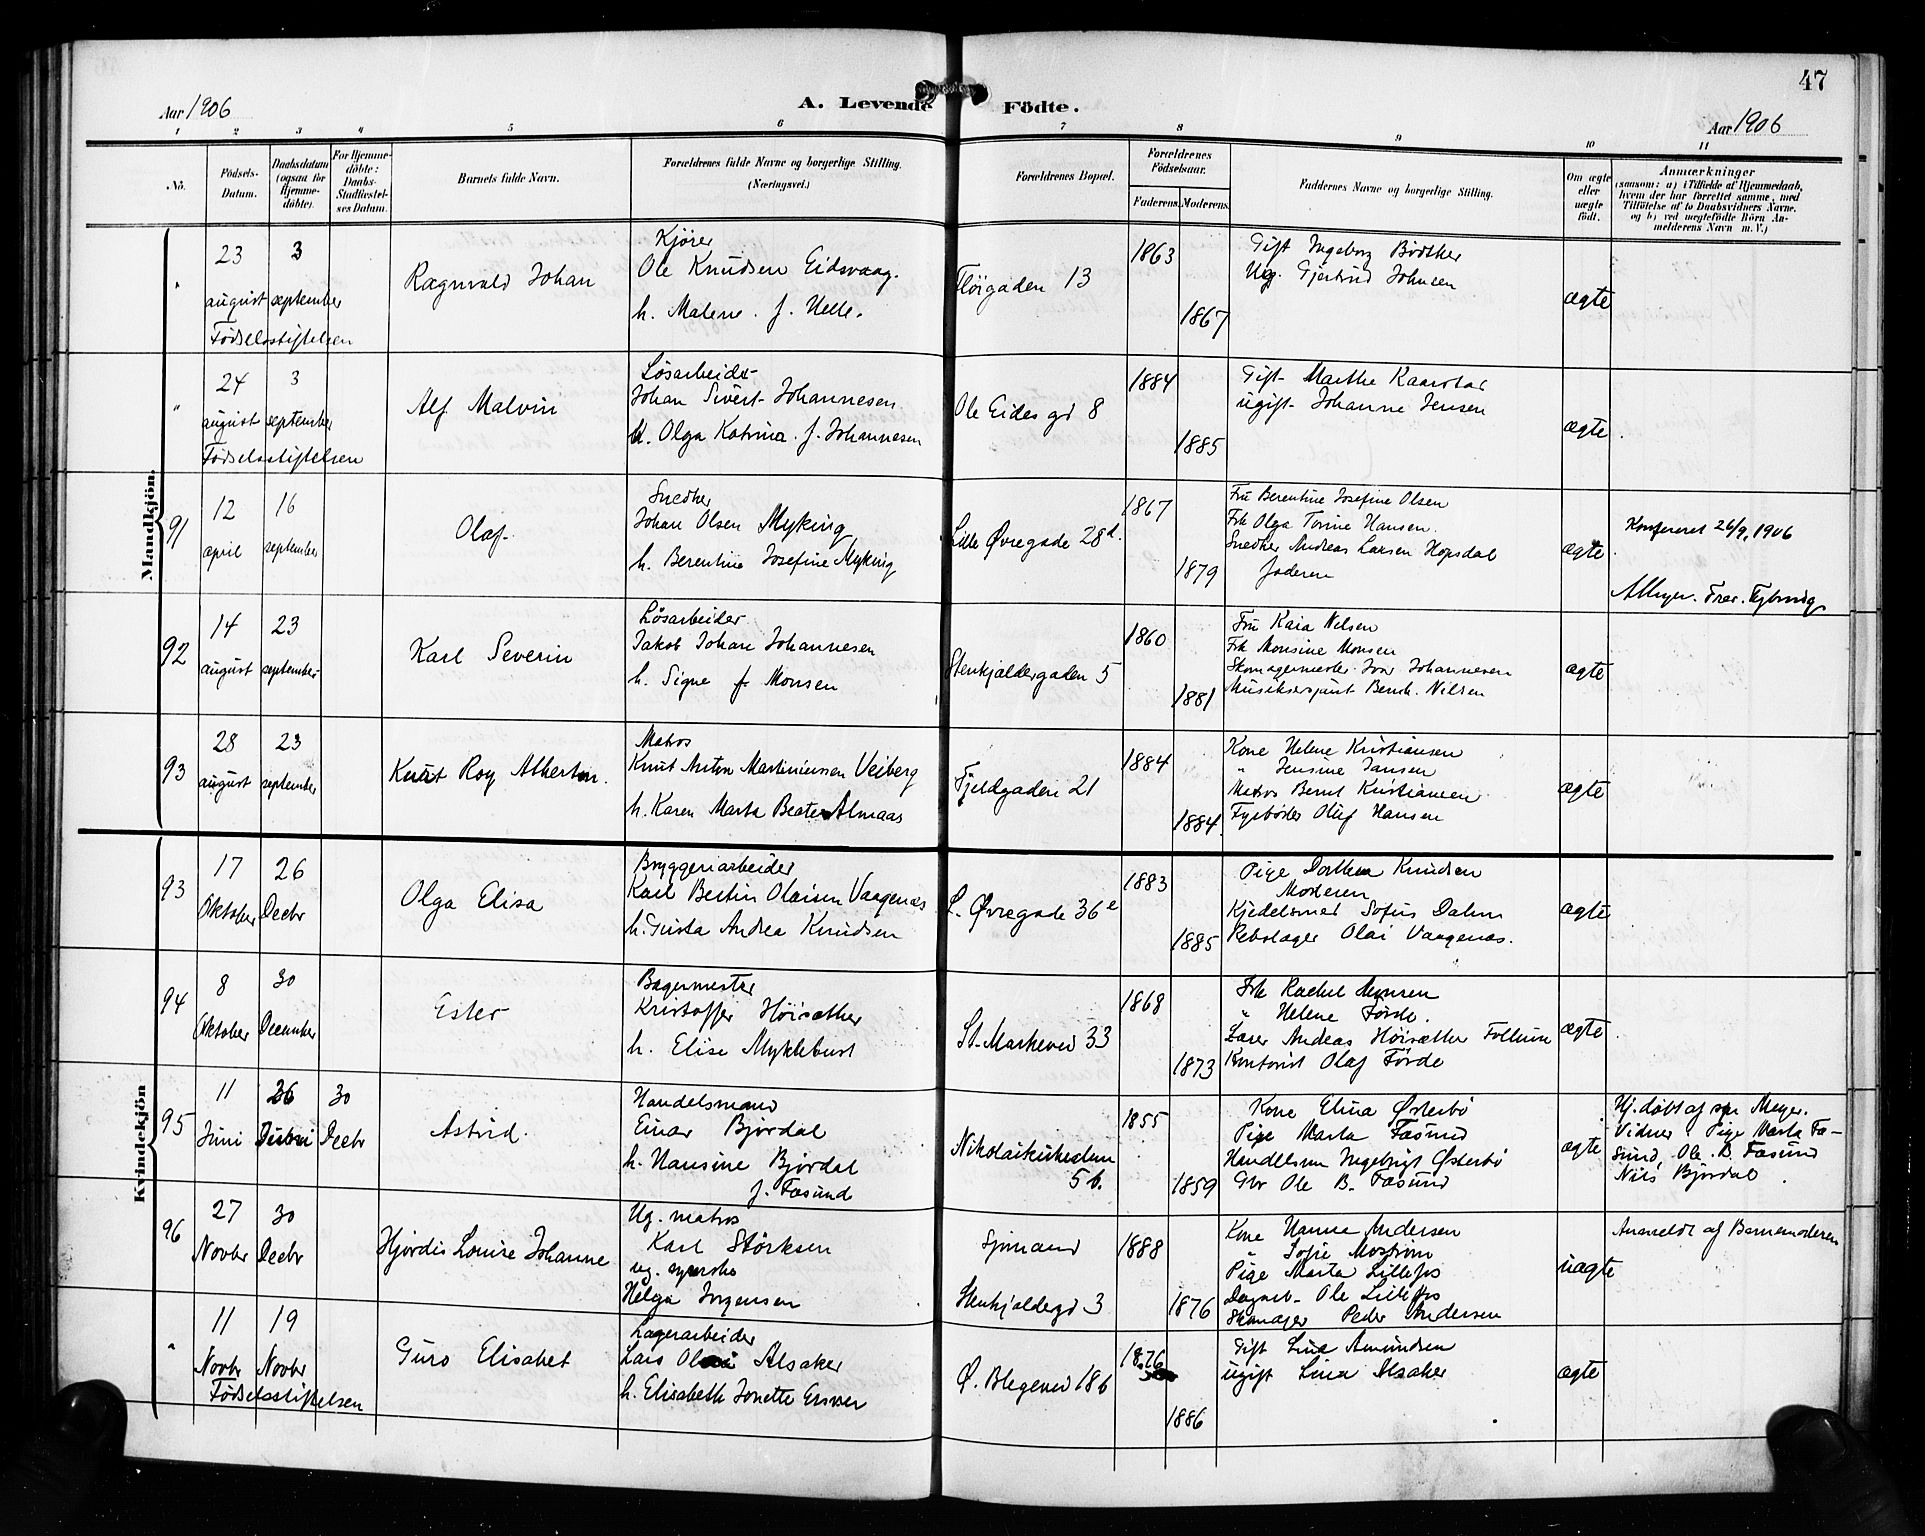 47
Aar 1906
A. Levende Födte.
Aar 1906
1 2 3 4 5 6 7 8 9 10 11
No.
Födsels-Datum.
Daabsdatum (ogsaa for Hjemme-döbte).
For Hjemme-döbte: Daabs-Stadfæstel-ses Datum.
Barnets fulde Navn.
Forældrenes fulde Navne og borgerlige Stilling.
(Næringsvei.)
Forældrenes Bopæl.
Forældrenes Födselsaar.
Faderens. Moderens.
Faddernes Navne og borgerlige Stilling.
Om ægte eller uægte födt.
Anmærkninger
(saasom: a) i Tilfælde af Hjemmedaab,
hvem der har forrettet samme, med
Tilföielse af to Daabsvidners Navne.
og b) ved uægtefödte Börn An-
melderens Navn m. V.)
Mandkjön.
" 23 august 3 september
Fødselsstiftelsen
Ragnvald Johan
Kjører
Ole Knudsen Eidsvaag.
h. Malene f. Helle.
Fløigaden 13
1863
1867
Gift Ingeborg Bødtker
Ug. Gjertrud Johnsen
ægte
" 24 august 3 september
Fødselsstiftelsen
Alf Malvin
Løsarbeider
Johan Sivert Johannesen
h. Olga Katrina f. Johannesen
Ole Eides gd 8
1884
1885
Gift Marthe Kaarstar
ugift Johanne Jensen
ægte
91 12 april 16 september
Olaf
Snedker
Johan Olsen Myking
h. Berentine Josefine Myking
Lille Øvregade 28d.
1867
1879
Fru Berentine Josefine Olsen
Frk Olga Torine Hansen.
Snedker Andreas Larsen Hopsdal
Faderen
ægte
Konfereret 26/9, 1906
AMeyer.
92 14 august 23 september
Karl Severin
Løsarbeider
Jakob Johan Johannesen
h. Signe f. Monsen
Stenkjældergaden 5
1860
1881
Fru Kaia Nilsen
Frk Monsine Monsen
Skomagermester Ivar Johannesen
Musiksergeant Bernh. Nilsen
ægte
93 28 august 23 september
Knut Roy Alberton.
Matros
Knut Anton Martiniussen Veiberg
h. Karen Marta Beate Almaas
Fjeldgaden 21
1884
1884.
Kone Helene Kristiansen
" Jensine Jansen
Matros Bernt Kristiansen
Fyrbøder Oluf Hansen
ægte
Kvindekjön
93 17 Oktober 26 Decbr
Olga Elisa
Bryggeriarbeider
Karl Bertin Olaisen Vaagenæs
h. Gusta Andrea Knudsen
L. Øvregade 36e
1883
1885
Pige Dorthea Knudsen
Moderen
Kjedelsmed Sofus Dahm
Rebslager Olai Vaagenæs.
ægte
94 8 Oktober 30 December
Ester
Bagermester
Kristoffer Høisæther
h. Elise Myklebust
St. Markevei 33
1868
1873
Frk Rachel Monsen
" Helene Førde.
Lærer Andeas Høisæther Follum
Kontorist Olaf Førde
ægte
95 11 Juni 26 30 Decbr
Astrid.
Handelsmand
Einar Bjørdal
h. Hansine Bjørdal
f. Fasund
Nikolaikirkealm 5b.
1855
1859
Kone Elina Østerbø
Pige Marta Fasund
Handelsm Ingebrigt Østerbø
Gbr Ole B. Fasund
ægte
Hj. døbt af spr Meyer.
Vidner Pige Marta Fa-
sund, Ole B. Fasund
Nils Bjørdal.
96 27 Novbr 30 Decbr
Hjørdis Louise Johanne
Ug. matros
Karl Størksen
ug. syerske
Helga Jørgensen
Sjømand
Stenkjældegd 3
1888
1876
Kone Hanna Andersen
" Sofie Mostrøm
Pige Marta Lillefos
Dagarb. Ole Lillefos
Skomager Peder Andersen
uægte
Anmeldt af Barnemoderen
" 11 Novbr 19 Novbr
Fødselsstiftelsen
Guro Elisabet
Lagerarbeider
Lars Olai Alsaker
h. Elisabeth Jonette
Ø. Blegevei 18b
1876
1886
Gift Lina Amundsen
ugift Lina Alsaker
ægte